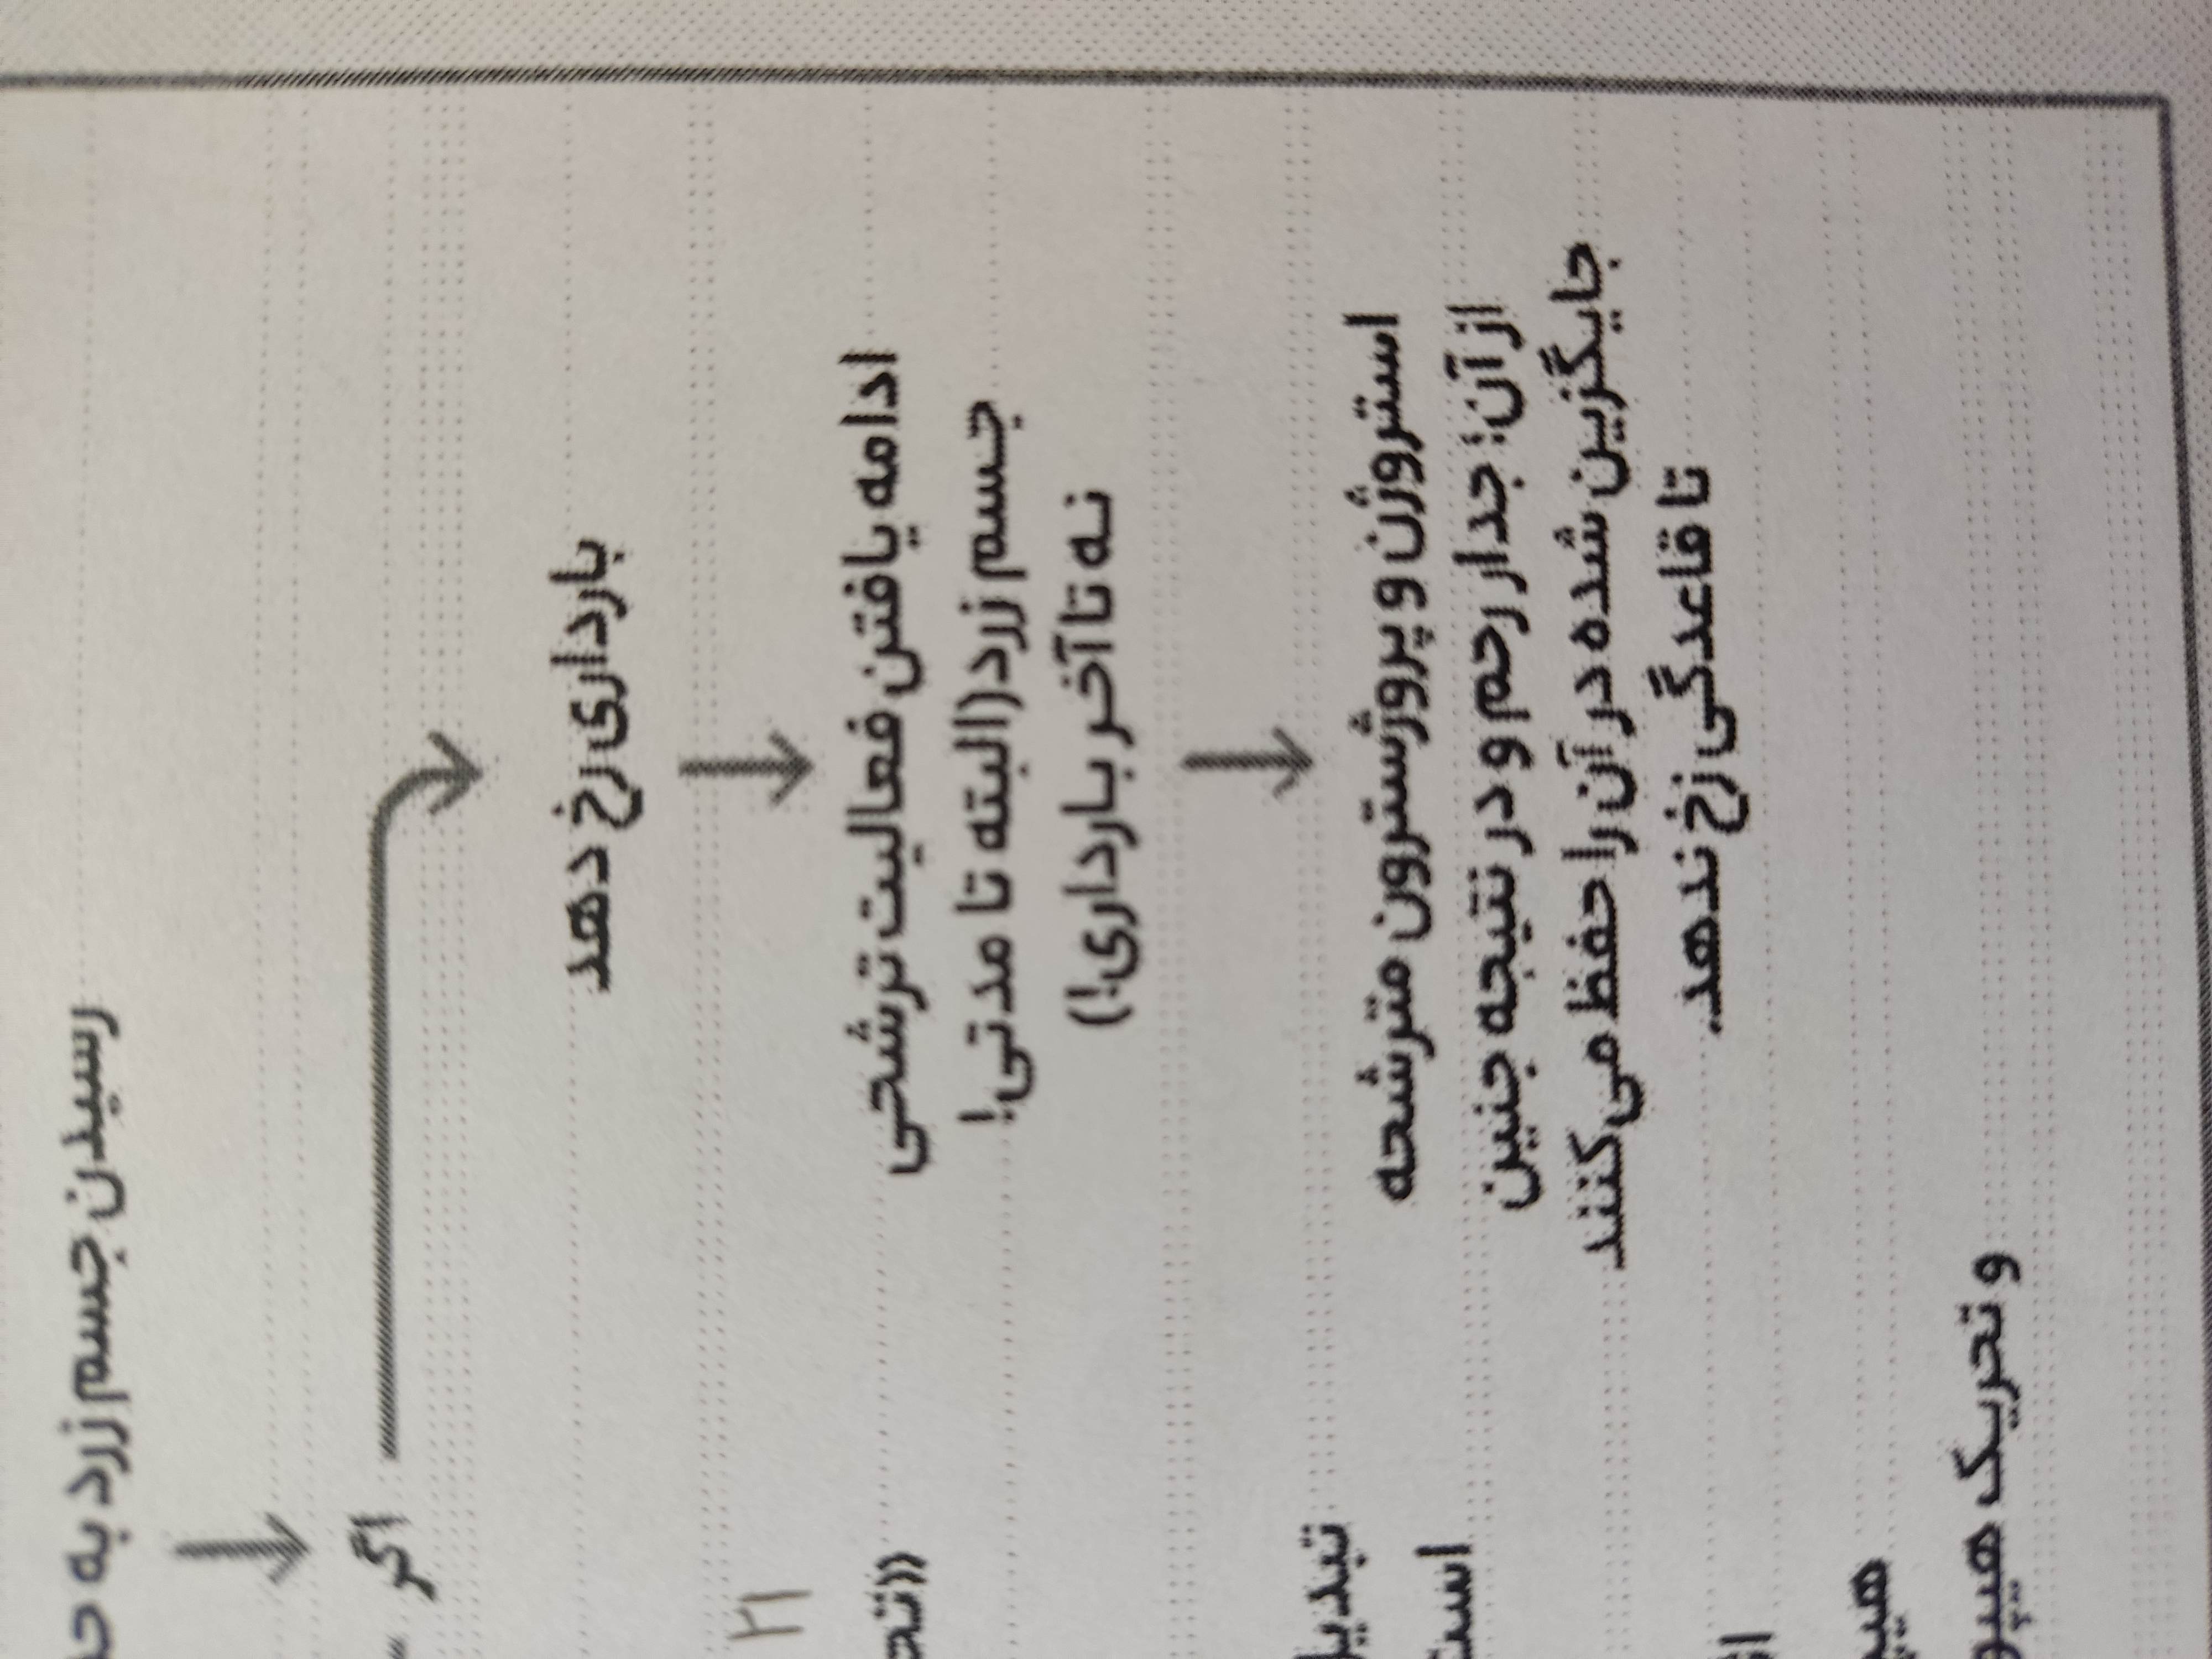 رسیدن جسم زرد به
اگر
بارداری رخ دهد
ادامه یافتن فعالیت ترشحی
جسم زرد (البته تا مدتی!
نه تا آخر بارداری!)
استروژن و پروژسترون مترشحه
از آن؛ جدار رحم و در نتیجه جنین
جایگزین شده در آن را حفظ می‌کنند
تا قاعدگی رخ ندهد.
۲۱
و تحریک